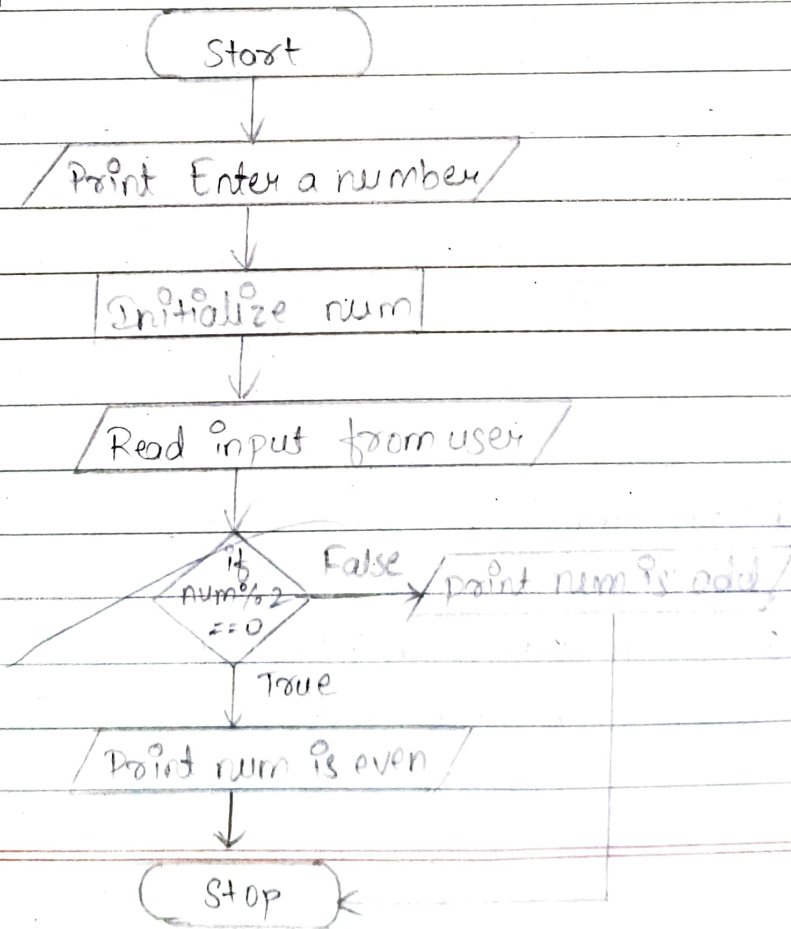 Start
Print Enter a number
Initialize num
Read input from user
if
num%2
==0
False
print num is odd
True
Print num is even
Stop